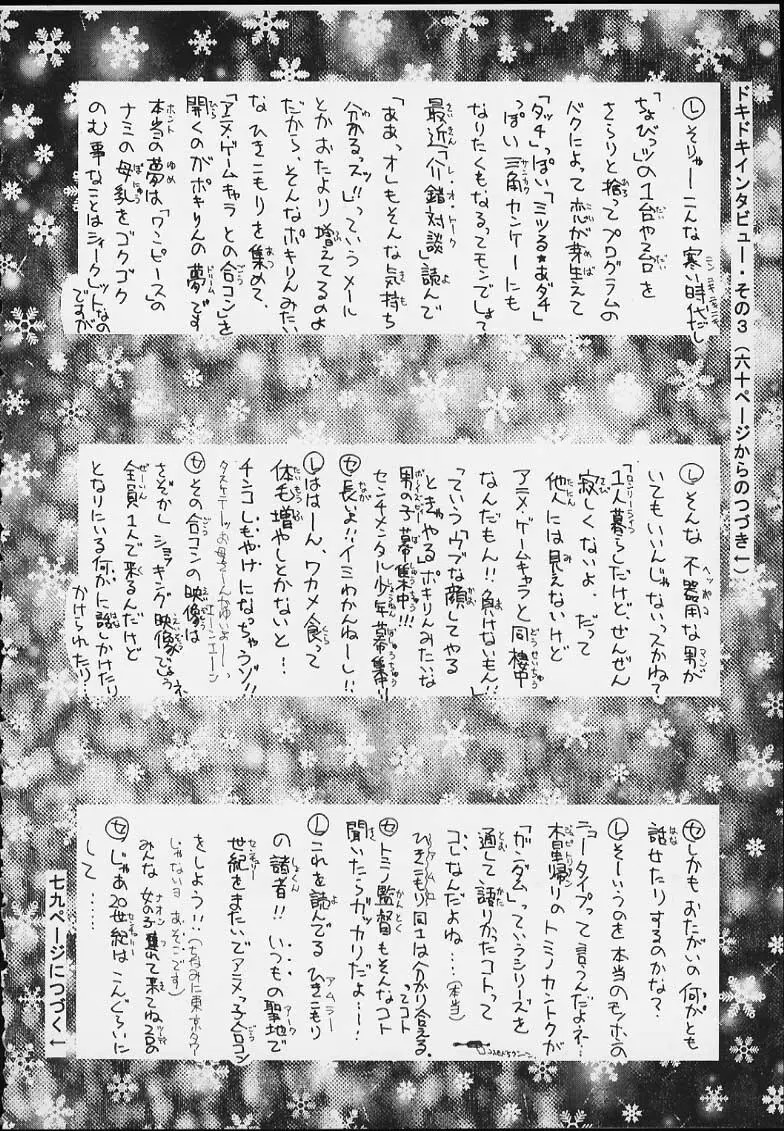 ドキドキインタビュー・その3（六十ページからのつづき↓）
Ⓛそりゃーこんな寒い時代だし
「ちょびっツ」の1台や2台を
さらりと捨ってプログラムの
バクによって恋が芽生えて
「タッチ」っぽい「ミツる★あダチ」
っぽい三角カンケーにも
なりたくもなるってモンでしょ？
最近「介錯対談」読んで
「ああっオレもそんな気持ち
分かるっスッ!!」っていうメール
とかおたより増えてるのよ
だから、そんなポキりんみたい
なひきこもりを集めて、
「アニメ・ゲームキャラとの合コン」を
開くのがポキりんの夢です
本当の夢は「ワンピース」の
ナミの母乳をゴクゴク
のむ事なことはシィークレットなの
ですが
Ⓛそんな不器用な男が
いてもいいんじゃないってかね？
「1人暮らしだけど、ぜんぜん
寂しくないよ。だって
他人には見えないけど
アニメ・ゲームキャラと同棲中
なんだもん!!負けないもん!!」
っていうウブな顔してやる
ときゃやるポキりんみたいな
男の子募集中!!!
センチメンタル少年募集中!!
Ⓢ長いよ!!イミわかんねーし!!
Ⓛははーん、ワカメ食って
体毛増やしとかないと!!
チンコしもやけになっちゃうゾ!!
Ⓢその合コンの映像は
さぞかしショッキング映像でしょうネ
全員1人で来るんだけど
となりにいる何かに話しかけたり
かけられたり…
Ⓢしかもおたがいの何かとも
話せたりするのかな？
Ⓛそーいうのを本当のモノホンの
ニュータイプって言うんだよネ…
木星帰りのトミノカントクが
「ガンダム」っていうシリーズを
通して語りかったコトって
コレなんだよね…（本当）
ひきこもり同士は分かり合える。
ってコト
Ⓢトミノ監督もそんなコト
聞いたらガッカリだよ…!
Ⓛこれを読んでるひきこもり
の諸者!!いつもの聖地で
世紀をまたいでアニメっ子合コン
をしよう!!（ちなみに東京タワー
じゃないヨあそこです）
みんな女の子連れて来てね
Ⓢじゃあ20世紀はこんぐらいに
して……
七九ページにつづく↓